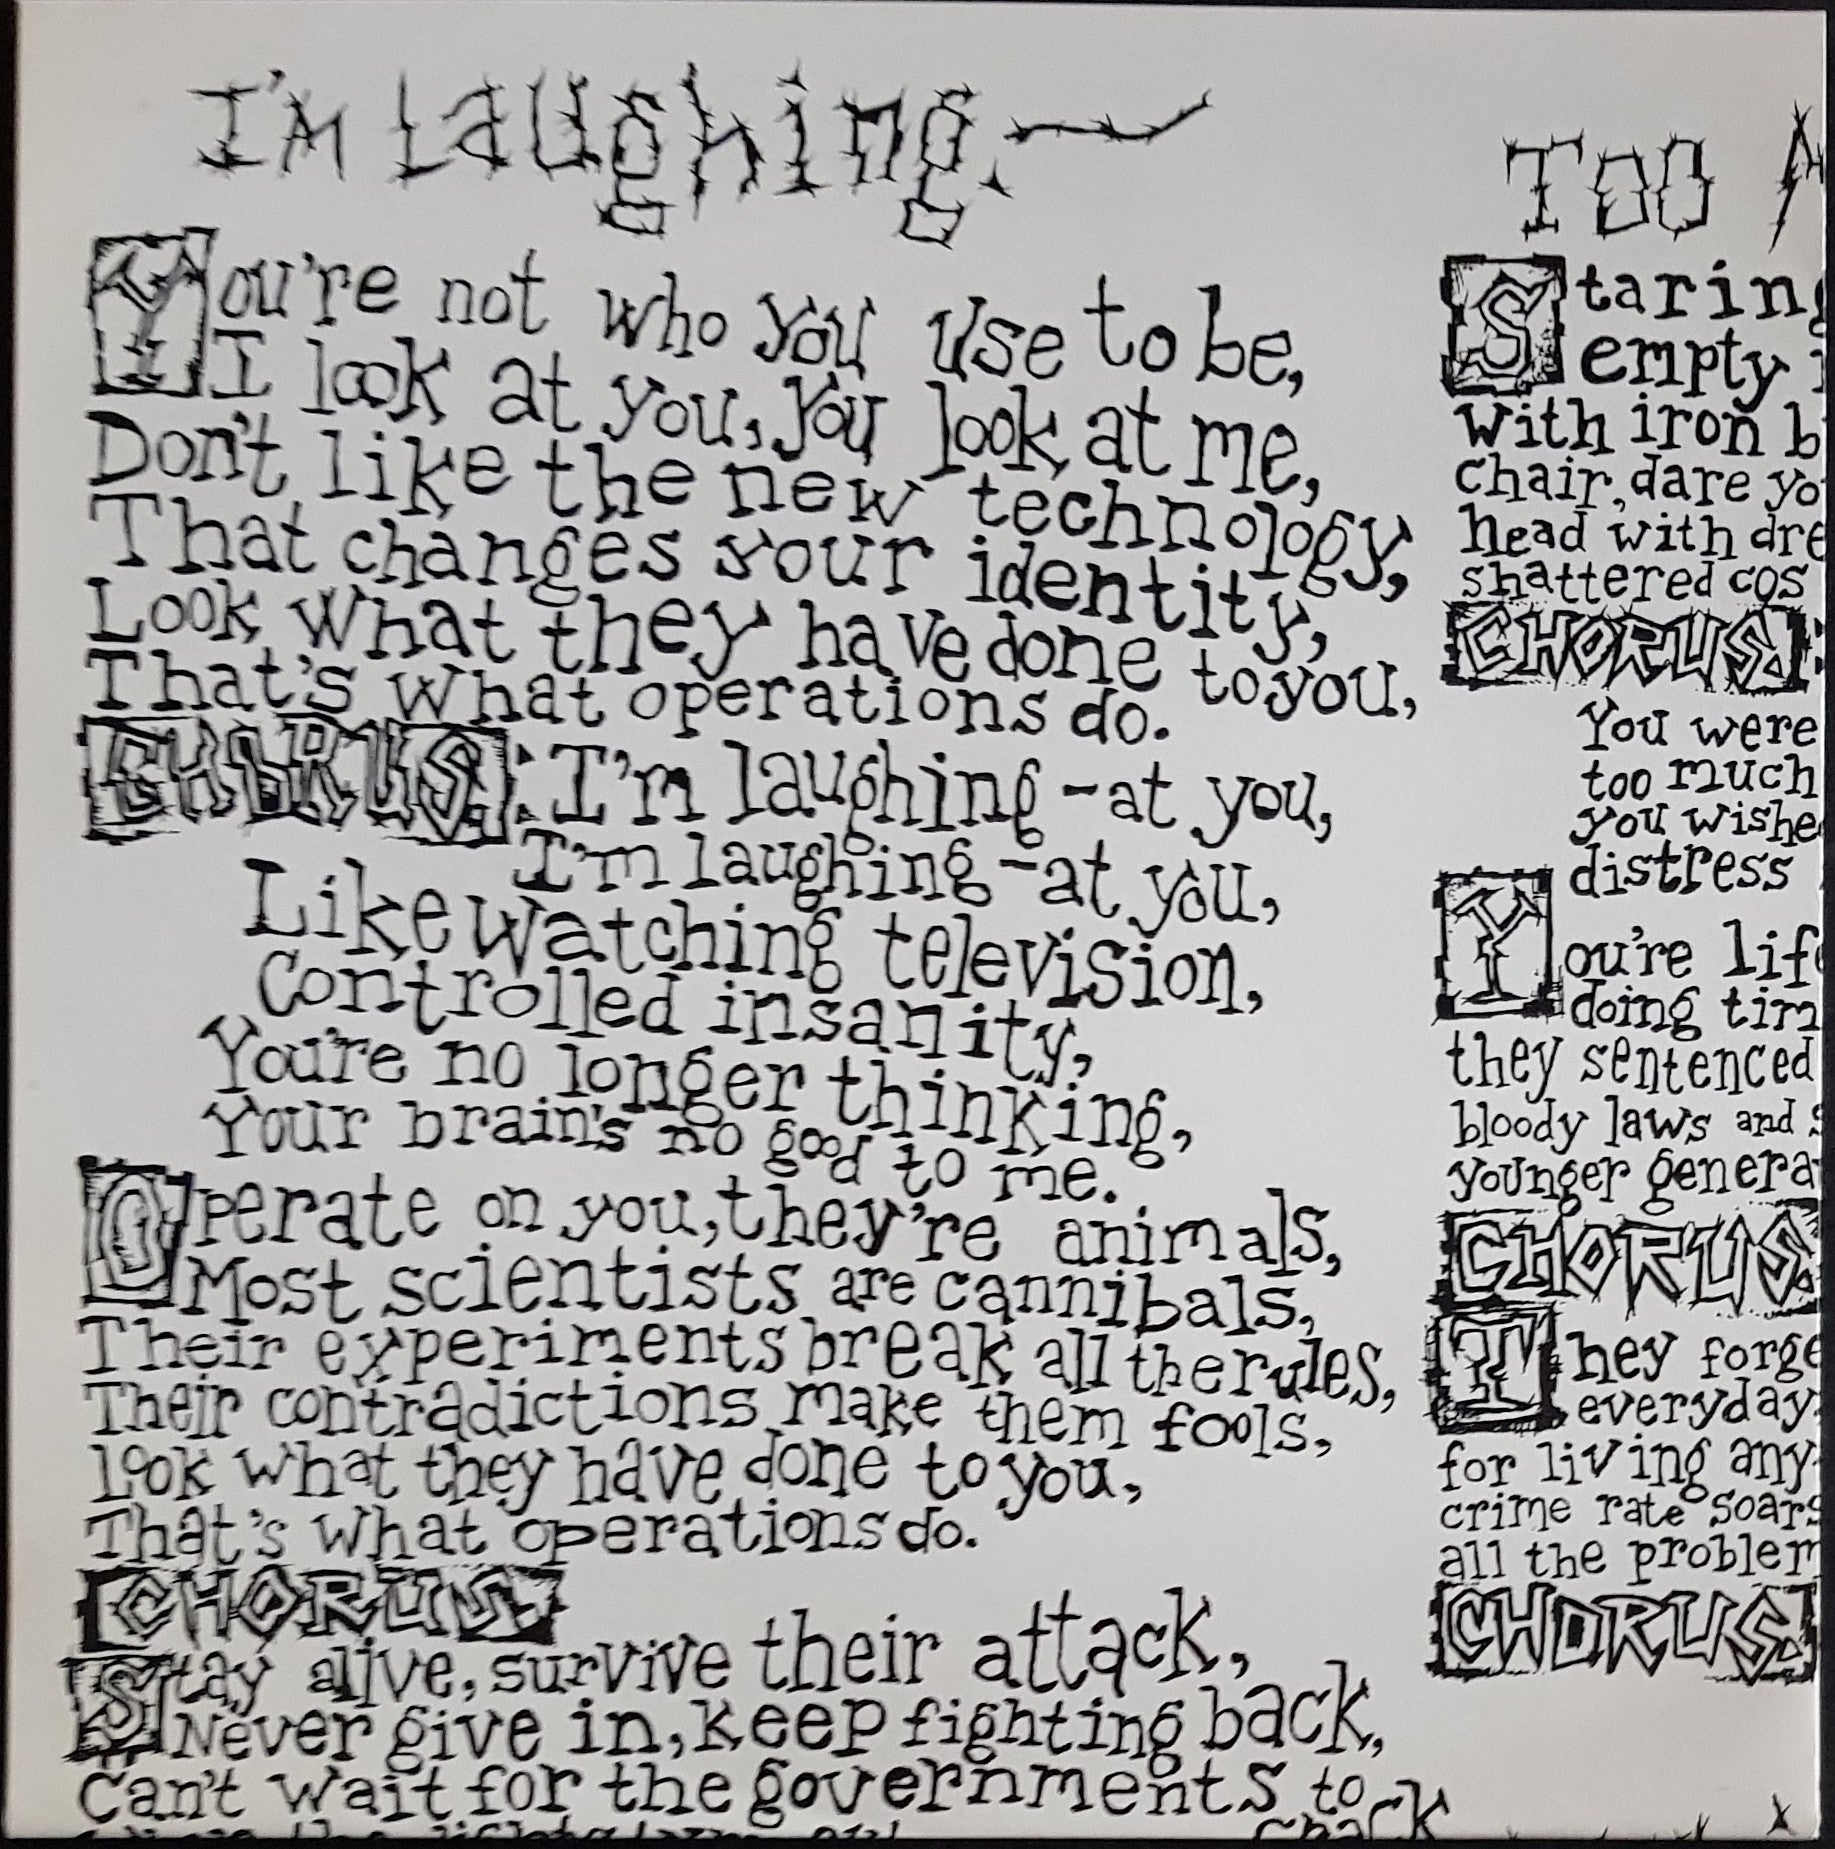 I'm Laughing.
You're not who you use to be,
I look at you, you look at me,
Don't like the new technology,
That changes your identity,
Look what they have done to you,
That's what operations do.
CHORUS: I'm laughing - at you,
I'm laughing - at you,
Like watching television,
Controlled insanity,
You're no longer thinking,
Your brain's no good to me.
Operate on you, they're animals,
Most scientists are cannibals,
Their experiments break all the rules,
Their contradictions make them fools,
Look what they have done to you,
That's what operations do.
CHORUS.
Stay alive, survive their attack,
Never give in, keep fighting back,
Can't wait for the governments to
crack
Too
Staring
empty
with iron
chair, dare
head with
shattered
CHORUS:
You were
too much
you
distress
You're
doing
they sentenced
bloody laws and
younger
CHORUS.
They
everyday
for living
crime rate
all the
CHORUS.